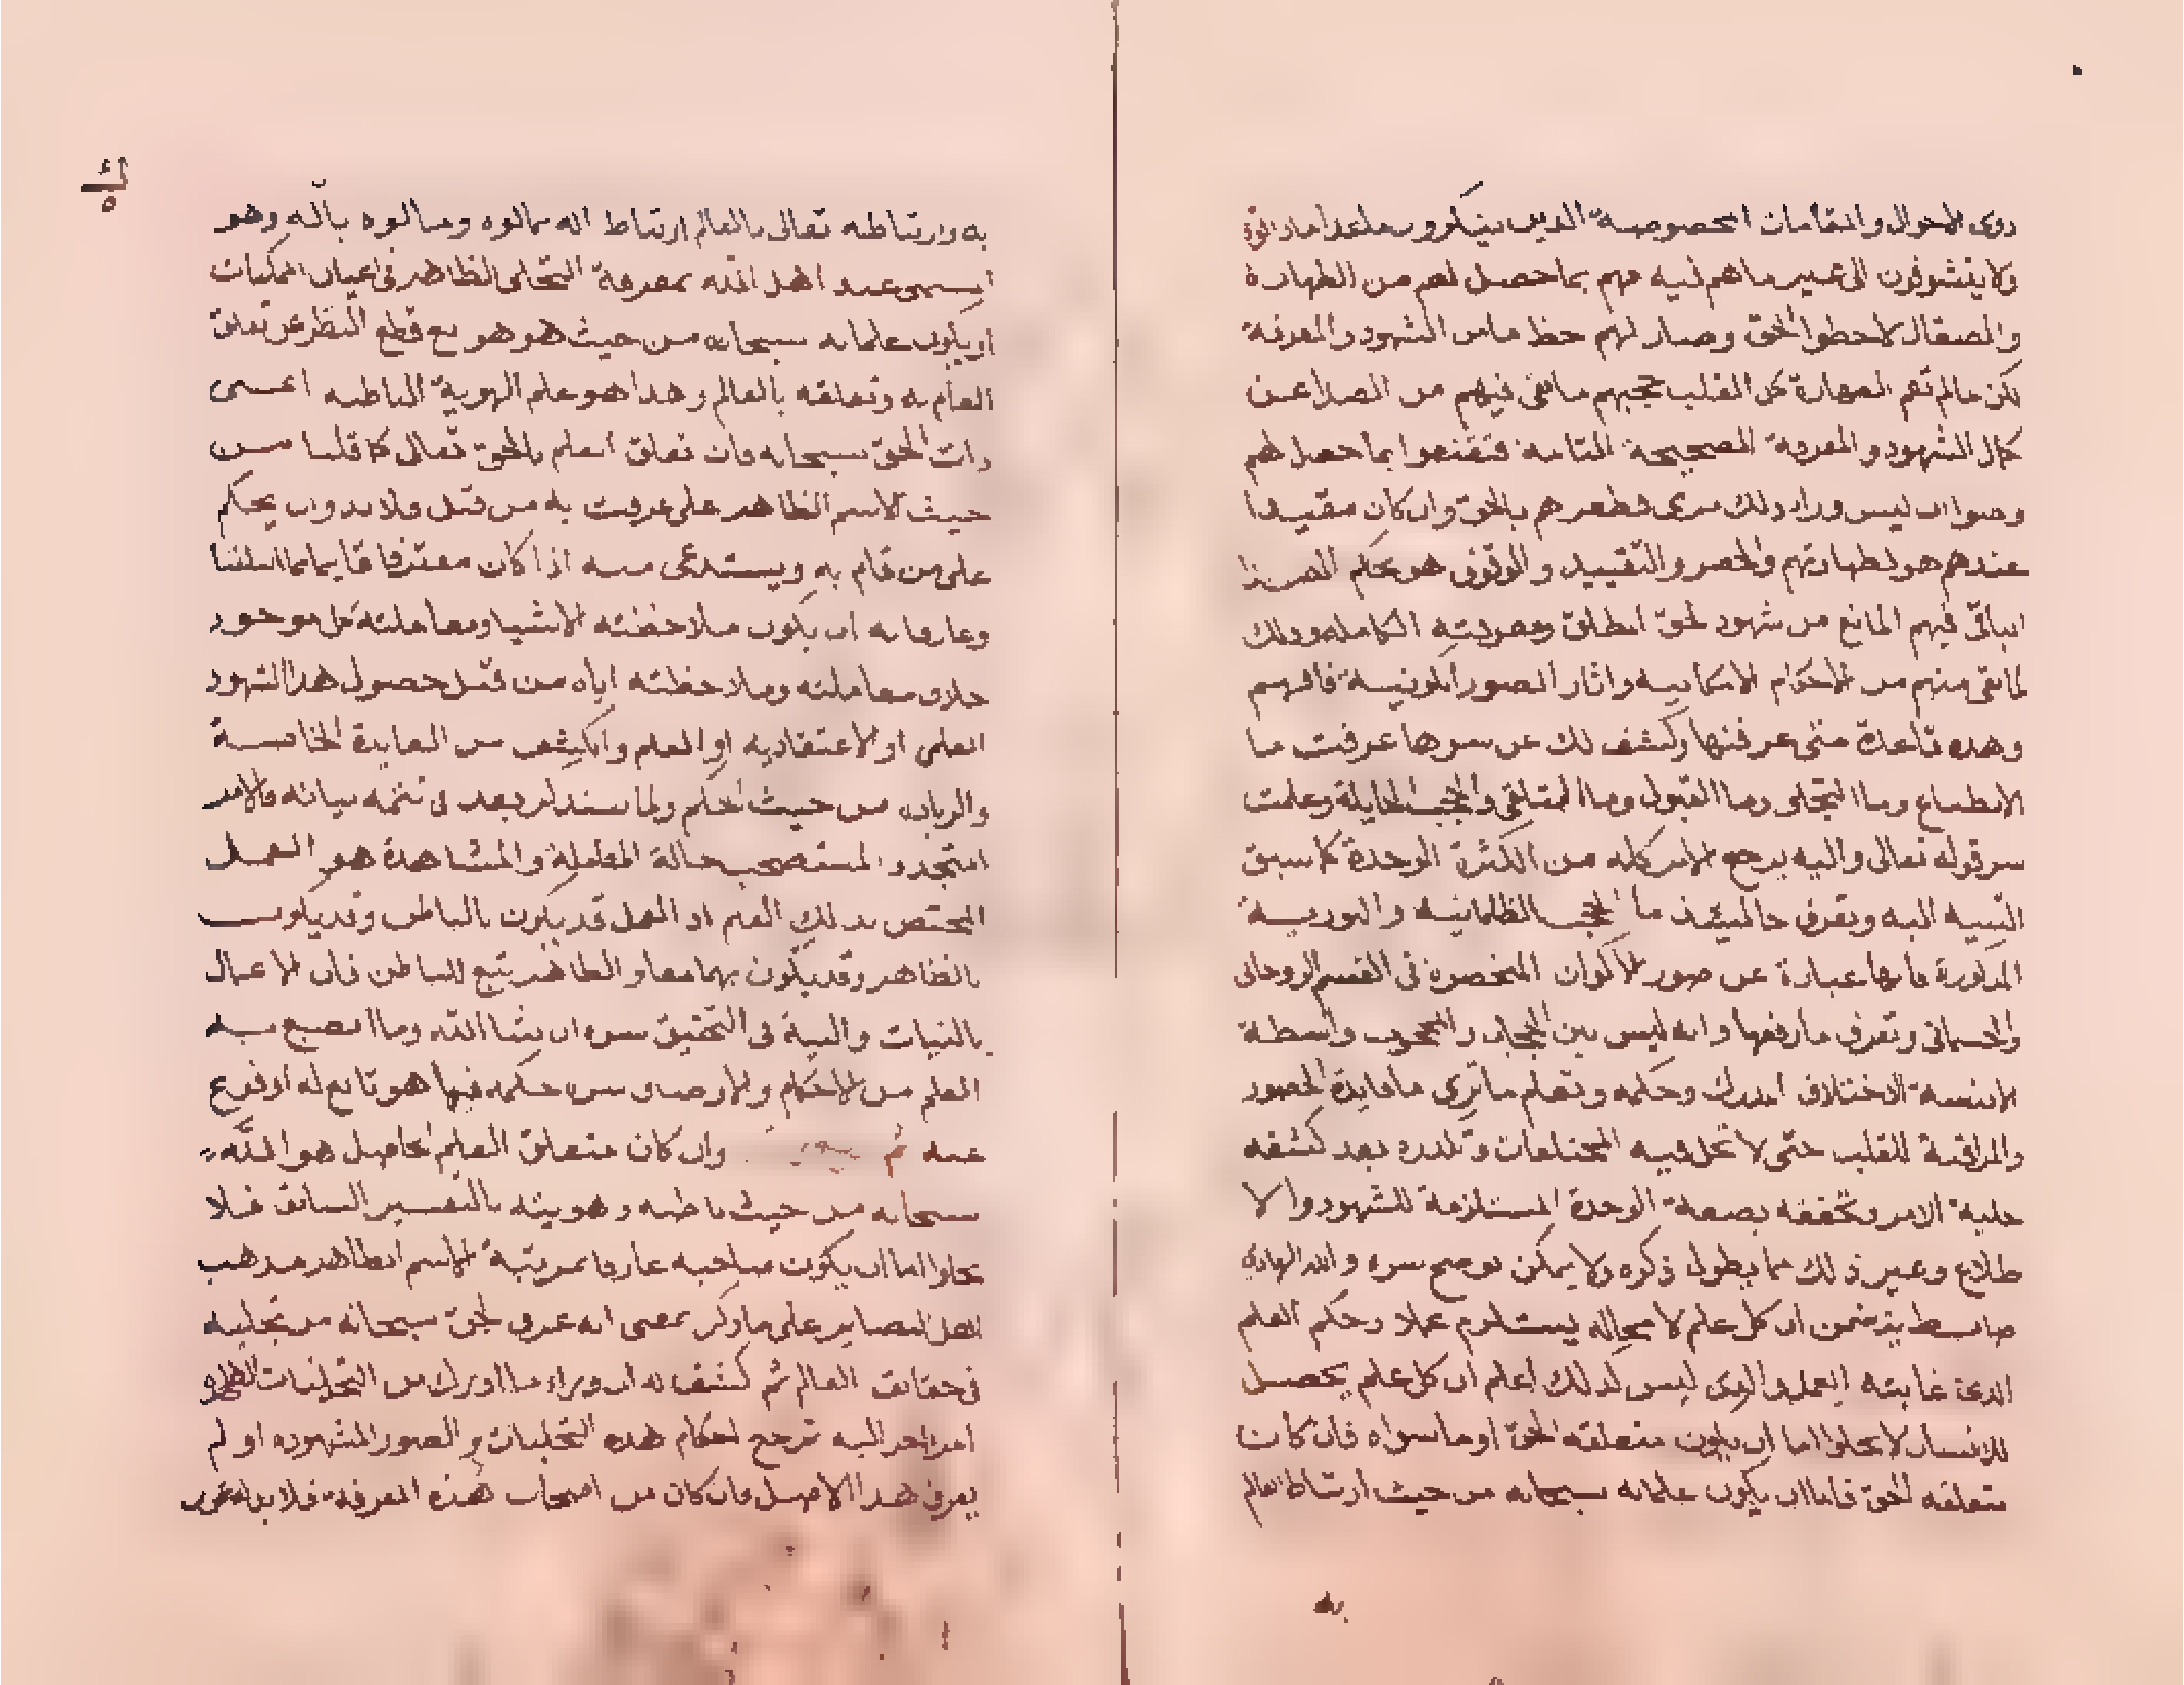 ذوى الاحوال والمقامات المخصوصة الذين ينكرون ما عدا ما ذاقوه
ولا يتشوفون الى غير ما هم فيه فهم بما حصل لهم من الطهارة
والصقال لاحظوا الحق وصار لهم حظ ما من الشهود والمعرفة
لكن ما لم تعم الطهارة كل القلب حجبهم ما بقى فيهم من الصدا عن
كال الشهود والمعرفة الصحيحة التامة فقنعوا بما حصل لهم
وظنوا ان ليس وراء ذلك مرمى فظفرهم بالحق وان كان مقيدا
عندهم هو لطهارتهم والحصر والتقييد والوقوف هو بحكم الصدا
الباقى فيهم المانع من شهود الحق المطلق ومعرفته الكاملة وذلك
لما بقى منهم من الاحكام الامكانيه واثار الصور الكونية فافهم
وهذه قاعدة متى عرفتها وكشف لك عن سرها عرفت ما
الانطباع وما التجلى وما القبول وما التلقى والحجب الحايلة وعلمت
سر قوله تعالى واليه يرجع الامر كله من الكثرة الى وحدة كما سبق
التنبيه اليه وتعرف حالتئذ ما الحجب الظلمانيه والنورية
المذكورة فانها عبارة عن صور الاكوان المنحصرة فى القسم الروحانى
والجسمانى وتعرف ما رفعها وانه ليس بين الحجاب والمحجوب واسطة
الا نسبة الاختلاف المدرك وحكمه وتعلم ما ترى ما فايدة الحضور
والمراقبة للقلب حتى لا تحل فيه المختلفات وتلدده بعد كشفه
جلية الامر وتحققه بصفة الوحدة المستلزمة للشهود والا
طلاع وغير ذلك مما يطول ذكره ولا يمكن توضيح سره والله الهادى
ضابط يتضمن ان كل علم لا محالة يستلزم عملا وحكم العلم
الذى غايته العمل والذى ليس كذلك اعلم ان كل علم يحصل
للانسان لا يخلوا اما ان يكون متعلقه الحق او ما سواه فان كان
متعلقه الحق فاما ان يكون علما به سبحانه من حيث ارتباط العالم
به وارتباطه تعالى بالعالم ارتباط اله بمالوه ومالوه باله وهو
المسمى عند اهل الله بمعرفة التجلى الظاهر فى اعيان الممكنات
او يكون علما به سبحانه من حيث هو هو مع قطع النظر عن تعلق
العالم به وتعلقه بالعالم وهذا هو علم الهوية الباطنه اعنى
ذات الحق سبحانه فان تعلق العلم بالحق تعالى كما قلنا من
حيث الاسم الظاهر على ما عرفت به من قبل فلا بد وان يحكم
على من قام به ويستدعى منه اذا كان معترفا قايما بما اسلفنا
وعارفا به ان يكون ملاحظته الاشياء ومعاملته كل موجود
خلاف معاملته وملاحظته اياه من قبل حصول هذا الشهود
العلمى او الاعتقاديه او العلم والكشف من الفايدة الخاصة
والزيادة من حيث الحكم ولما سنذكر بعد فى تتمة بيانه فالامر
المتجدد المستصحب حالة المعاملة والمشاهدة هو العمل
المختص بذلك العلم اذ العمل قد يكون بالباطن وقد يكون
بالظاهر وقد يكون بهما معا والظاهر يتبع الباطن فان الاعمال
بالنيات والنية فى التحقيق سره ان شاء الله وما انصبغ به
العلم من الاحكام والاوصاف سرت حكمه فيما هو تابع له او فرع
عنه ثم وان كان متعلق العلم الحاصل هو الله
سبحانه من حيث باطنه وهويته بالتفسير السابق فلا
يخلوا اما ان يكون صاحبه عارفا بمرتبة الاسم الظاهر مذهب
اهل البصاير على ما ذكر بمعنى انه عرف الحق سبحانه من تجليه
فى حقائق العالم ثم كشف له ان وراء ما ادرك من التجليات الظاهرة
امرا اخر اليه ترجع احكام هذه التجليات والصور المشهودة او لم
يعرف هذا الاصل فان كان من اصحاب هذه المعرفة فلا بد له من